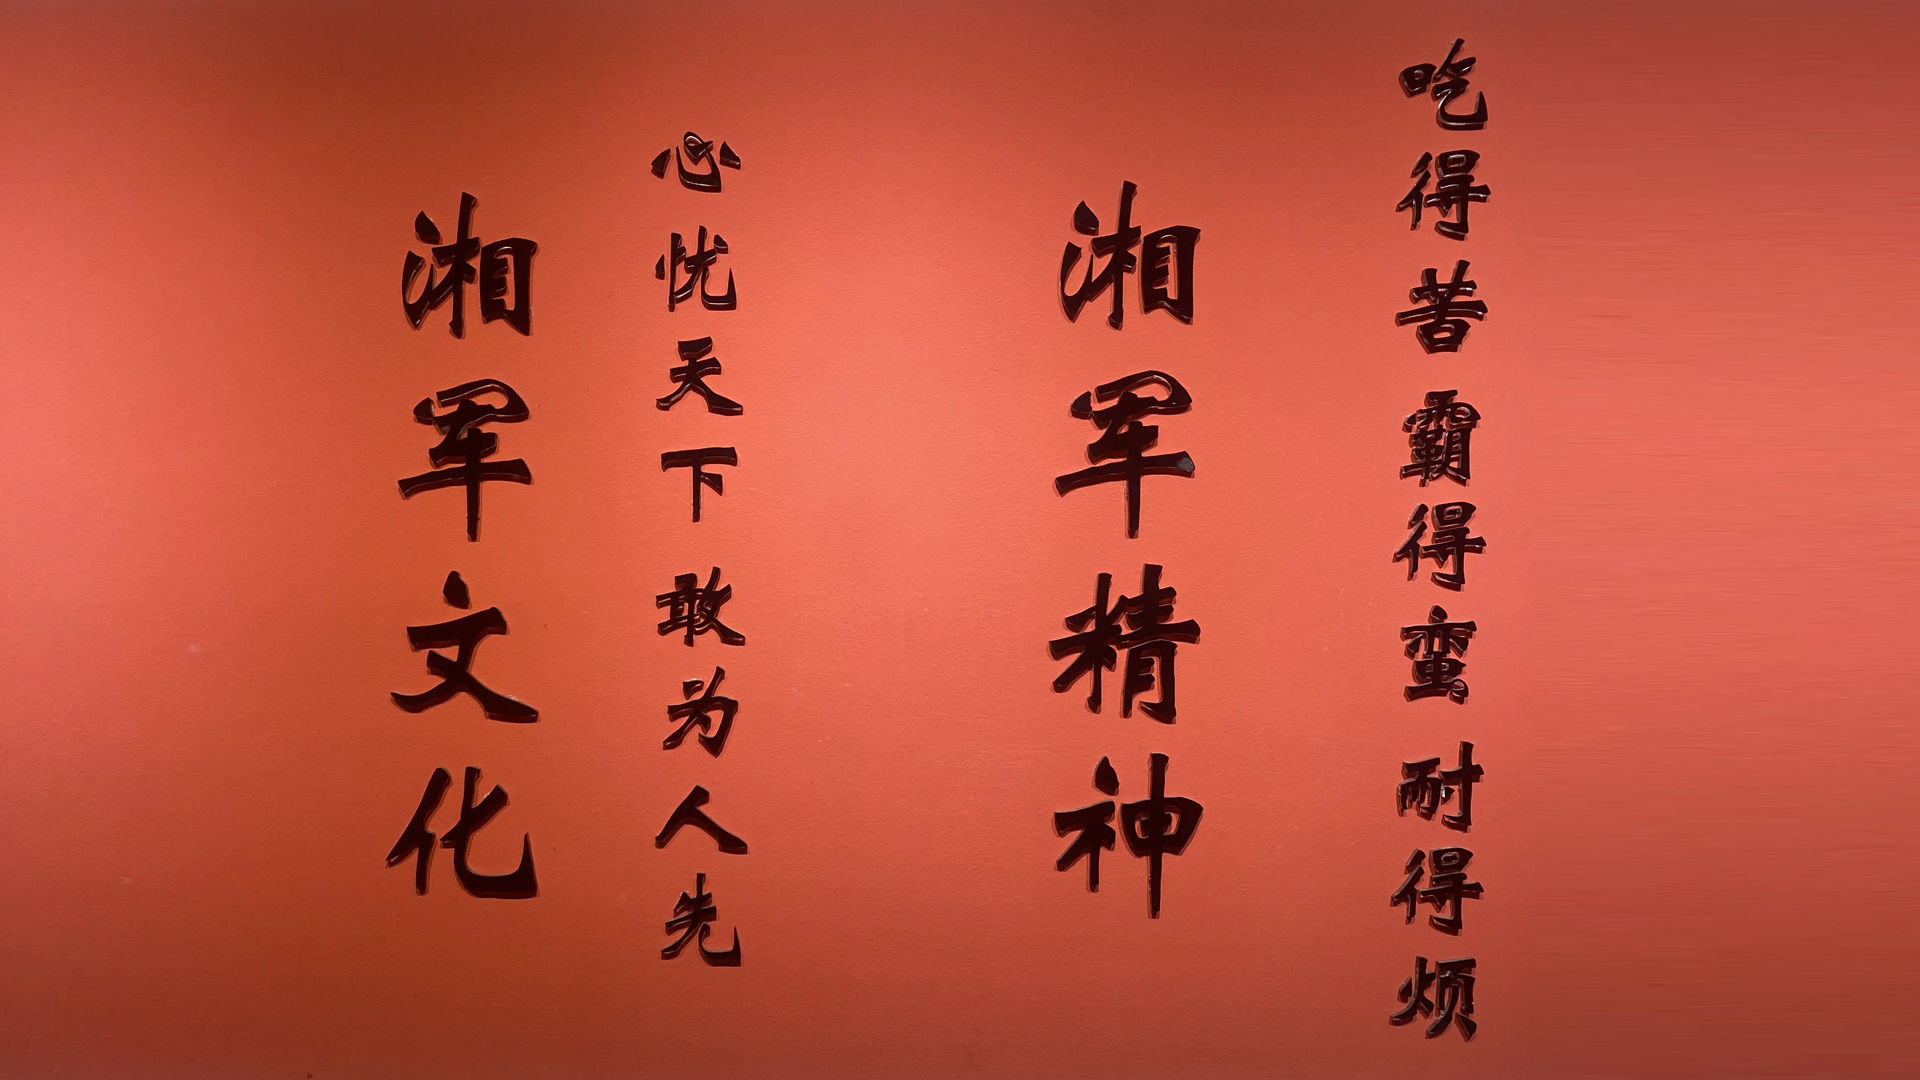 湘军文化
心忧天下 敢为人先
湘军精神
吃得苦 霸得蛮 耐得烦